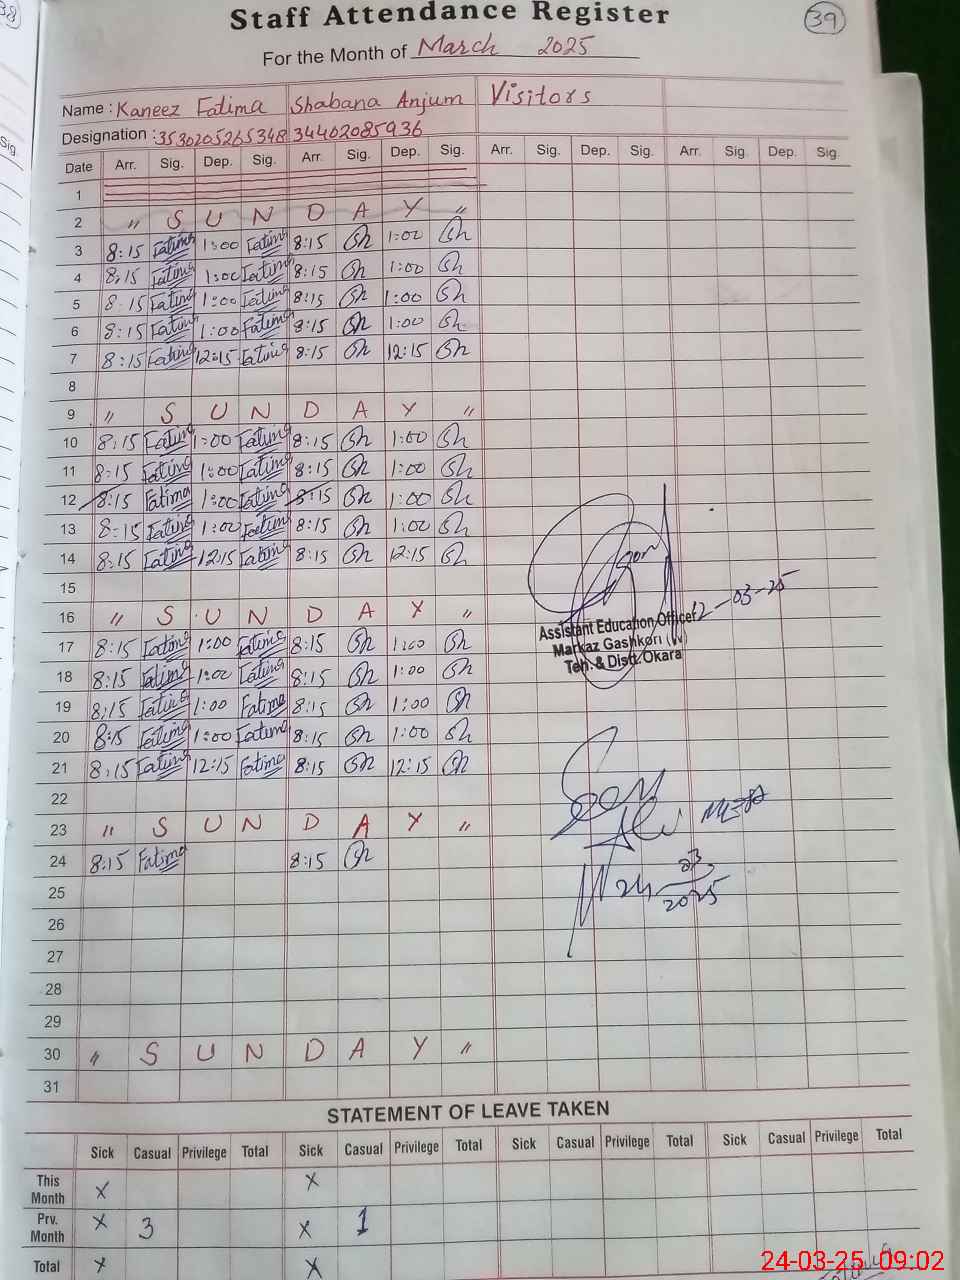 38
Staff Attendance Register
39
For the Month of March 2025
Name : Kaneez Fatima Shabana Anjum Visitors
Designation : 3530205265348 34402085936
Sig.
Date Arr. Sig. Dep. Sig. Arr. Sig. Dep. Sig. Arr. Sig. Dep. Sig. Arr. Sig. Dep. Sig.
1
2 " S U N D A Y "
3 8:15 Fatima 1:00 Fatima 8:15 Sh 1:00 Sh
4 8:15 Fatima 1:00 Fatima 8:15 Sh 1:00 Sh
5 8:15 Fatima 1:00 Fatima 8:15 Sh 1:00 Sh
6 8:15 Fatima 1:00 Fatima 8:15 Sh 1:00 Sh
7 8:15 Fatima 12:15 Fatima 8:15 Sh 12:15 Sh
8
9 " S U N D A Y "
10 8:15 Fatima 1:00 Fatima 8:15 Sh 1:00 Sh
11 8:15 Fatima 1:00 Fatima 8:15 Sh 1:00 Sh
12 8:15 Fatima 1:00 Fatima 8:15 Sh 1:00 Sh
13 8:15 Fatima 1:00 Fatima 8:15 Sh 1:00 Sh
14 8:15 Fatima 12:15 Fatima 8:15 Sh 12:15 Sh
15
16 " S U N D A Y "
12-03-25
Assistant Education Officer
Markaz Gashkori (W)
Teh. & Distt. Okara
17 8:15 Fatima 1:00 Fatima 8:15 Sh 1:00 Sh
18 8:15 Fatima 1:00 Fatima 8:15 Sh 1:00 Sh
19 8:15 Fatima 1:00 Fatima 8:15 Sh 1:00 Sh
20 8:15 Fatima 1:00 Fatima 8:15 Sh 1:00 Sh
21 8:15 Fatima 12:15 Fatima 8:15 Sh 12:15 Sh
22
23 " S U N D A Y "
24 8:15 Fatima 8:15 Sh
24 03
2025
25
26
27
28
29
30 " S U N D A Y "
31
STATEMENT OF LEAVE TAKEN
Sick Casual Privilege Total Sick Casual Privilege Total Sick Casual Privilege Total Sick Casual Privilege Total
This Month x x
Prv. Month x 3 x 1
Total x x
24-03-25 09:02